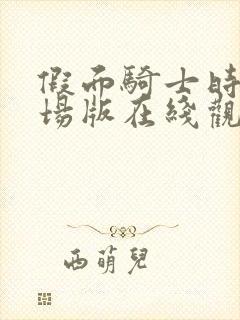 假而騎士時
場版在綫觀
西萌兒